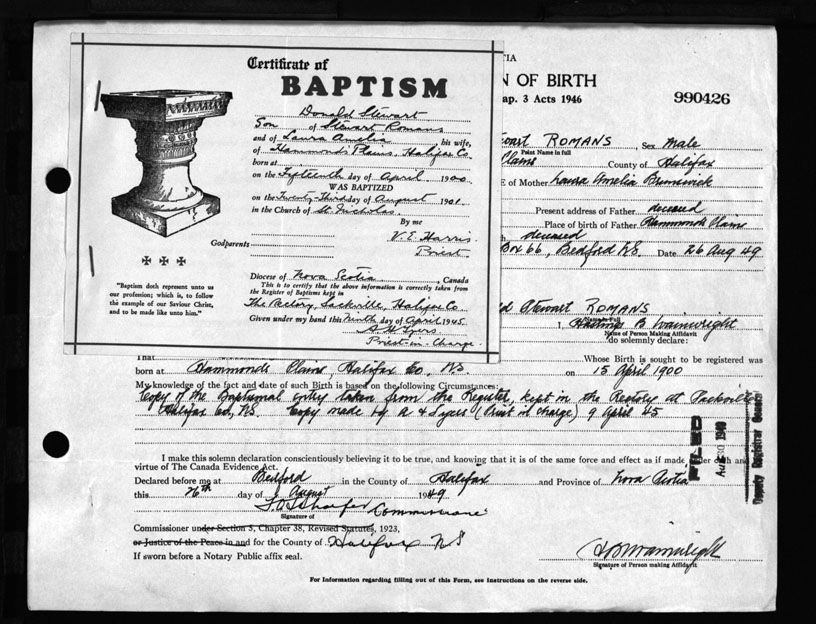 Certificate of
BAPTISM
Donald Stewart
Son of Stewart Romans
and of Laura Amelia his wife,
of Hammonds Plains, Halifax Co
born at
on the Fifteenth day of April 1900
WAS BAPTIZED
on the Twenty Third day of August 1901.
in the Church of St. Nicholas.
By me
V. E. Harris.
Priest
Godparents
"Baptism doth represent unto us
our profession; which is, to follow
the example of our Saviour Christ,
and to be made like unto him."
Diocese of Nova Scotia, Canada
This is to certify that the above information is correctly taken from
the Register of Baptisms kept in
The Rectory, Sackville, Halifax Co
Given under my hand this Ninth day of April 1945
Priest-in-Charge
TIA
N OF BIRTH
ap. 3 Acts 1946
990426
wart ROMANS Sex Male
First Name in full
Plains County of Halifax
E of Mother Laura Amelia Brunswick
Present address of Father deceased
Place of birth of Father Hammonds Plains
deceased
Box 66, Bedford N.S. Date 26 Aug 49
ld Stewart ROMANS
I, Hastings B Wainwright
Name of Person Making Affidavit
do solemnly declare:
That Whose Birth is sought to be registered was
born at Hammonds Plains, Halifax Co, N.S. on 15 April 1900
My knowledge of the fact and date of such Birth is based on the following Circumstances:
Copy of the Baptismal entry taken from the Register, kept in the Rectory at Sackville
Halifax Co, N.S. Copy made by (Priest in charge) 9 April 45
FILED
Aug 30 1949
Deputy Registrar General
I make this solemn declaration conscientiously believing it to be true, and knowing that it is of the same force and effect as if made under oath and
virtue of The Canada Evidence Act.
Declared before me at Bedford in the County of Halifax and Province of Nova Scotia
this 26th day of August 1949
Commissioner
Signature of
Commissioner under Section 3, Chapter 38, Revised Statutes, 1923,
or Justice of the Peace in and for the County of Halifax NS
If sworn before a Notary Public affix seal.
H B Wainwright
Signature of Person making Affidavit
For Information regarding filling out of this Form, see Instructions on the reverse side.